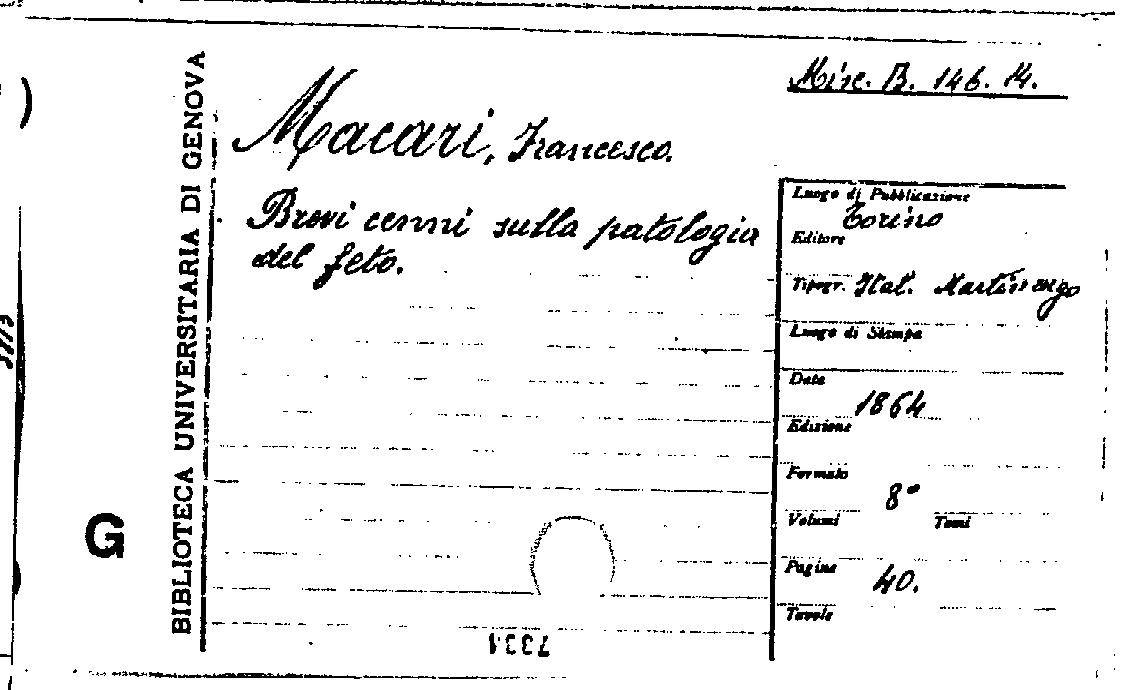 Misc. B. 146. 14.
Macari, Francesco.
Brevi cenni sulla patologia
del feto.
BIBLIOTECA UNIVERSITARIA DI GENOVA
G
Luogo di Pubblicazione
Torino
Editore
Tipogr. Ital. Martinengo
Luogo di Stampa
Data
1864
Edizione
Formato
8°
Volumi Tomi
Pagine
40.
Tavole